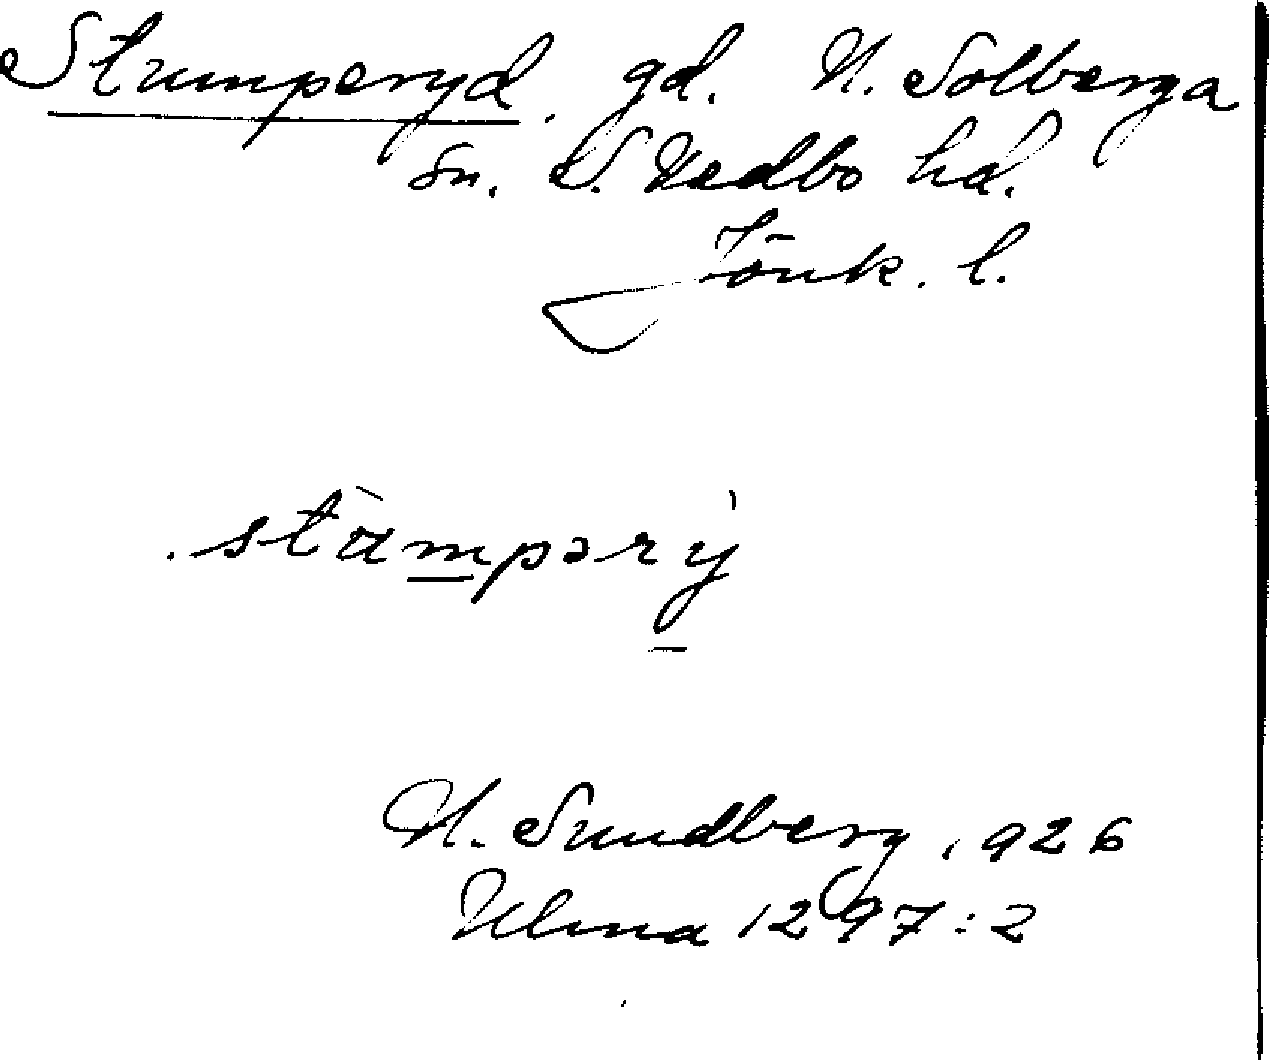 Stumperyd. gd. N. Solberga
sn. S. Vedbo hd.
Jönk. l.
stàmpərý
H. Sundberg, 1926
Ulma 1297:2